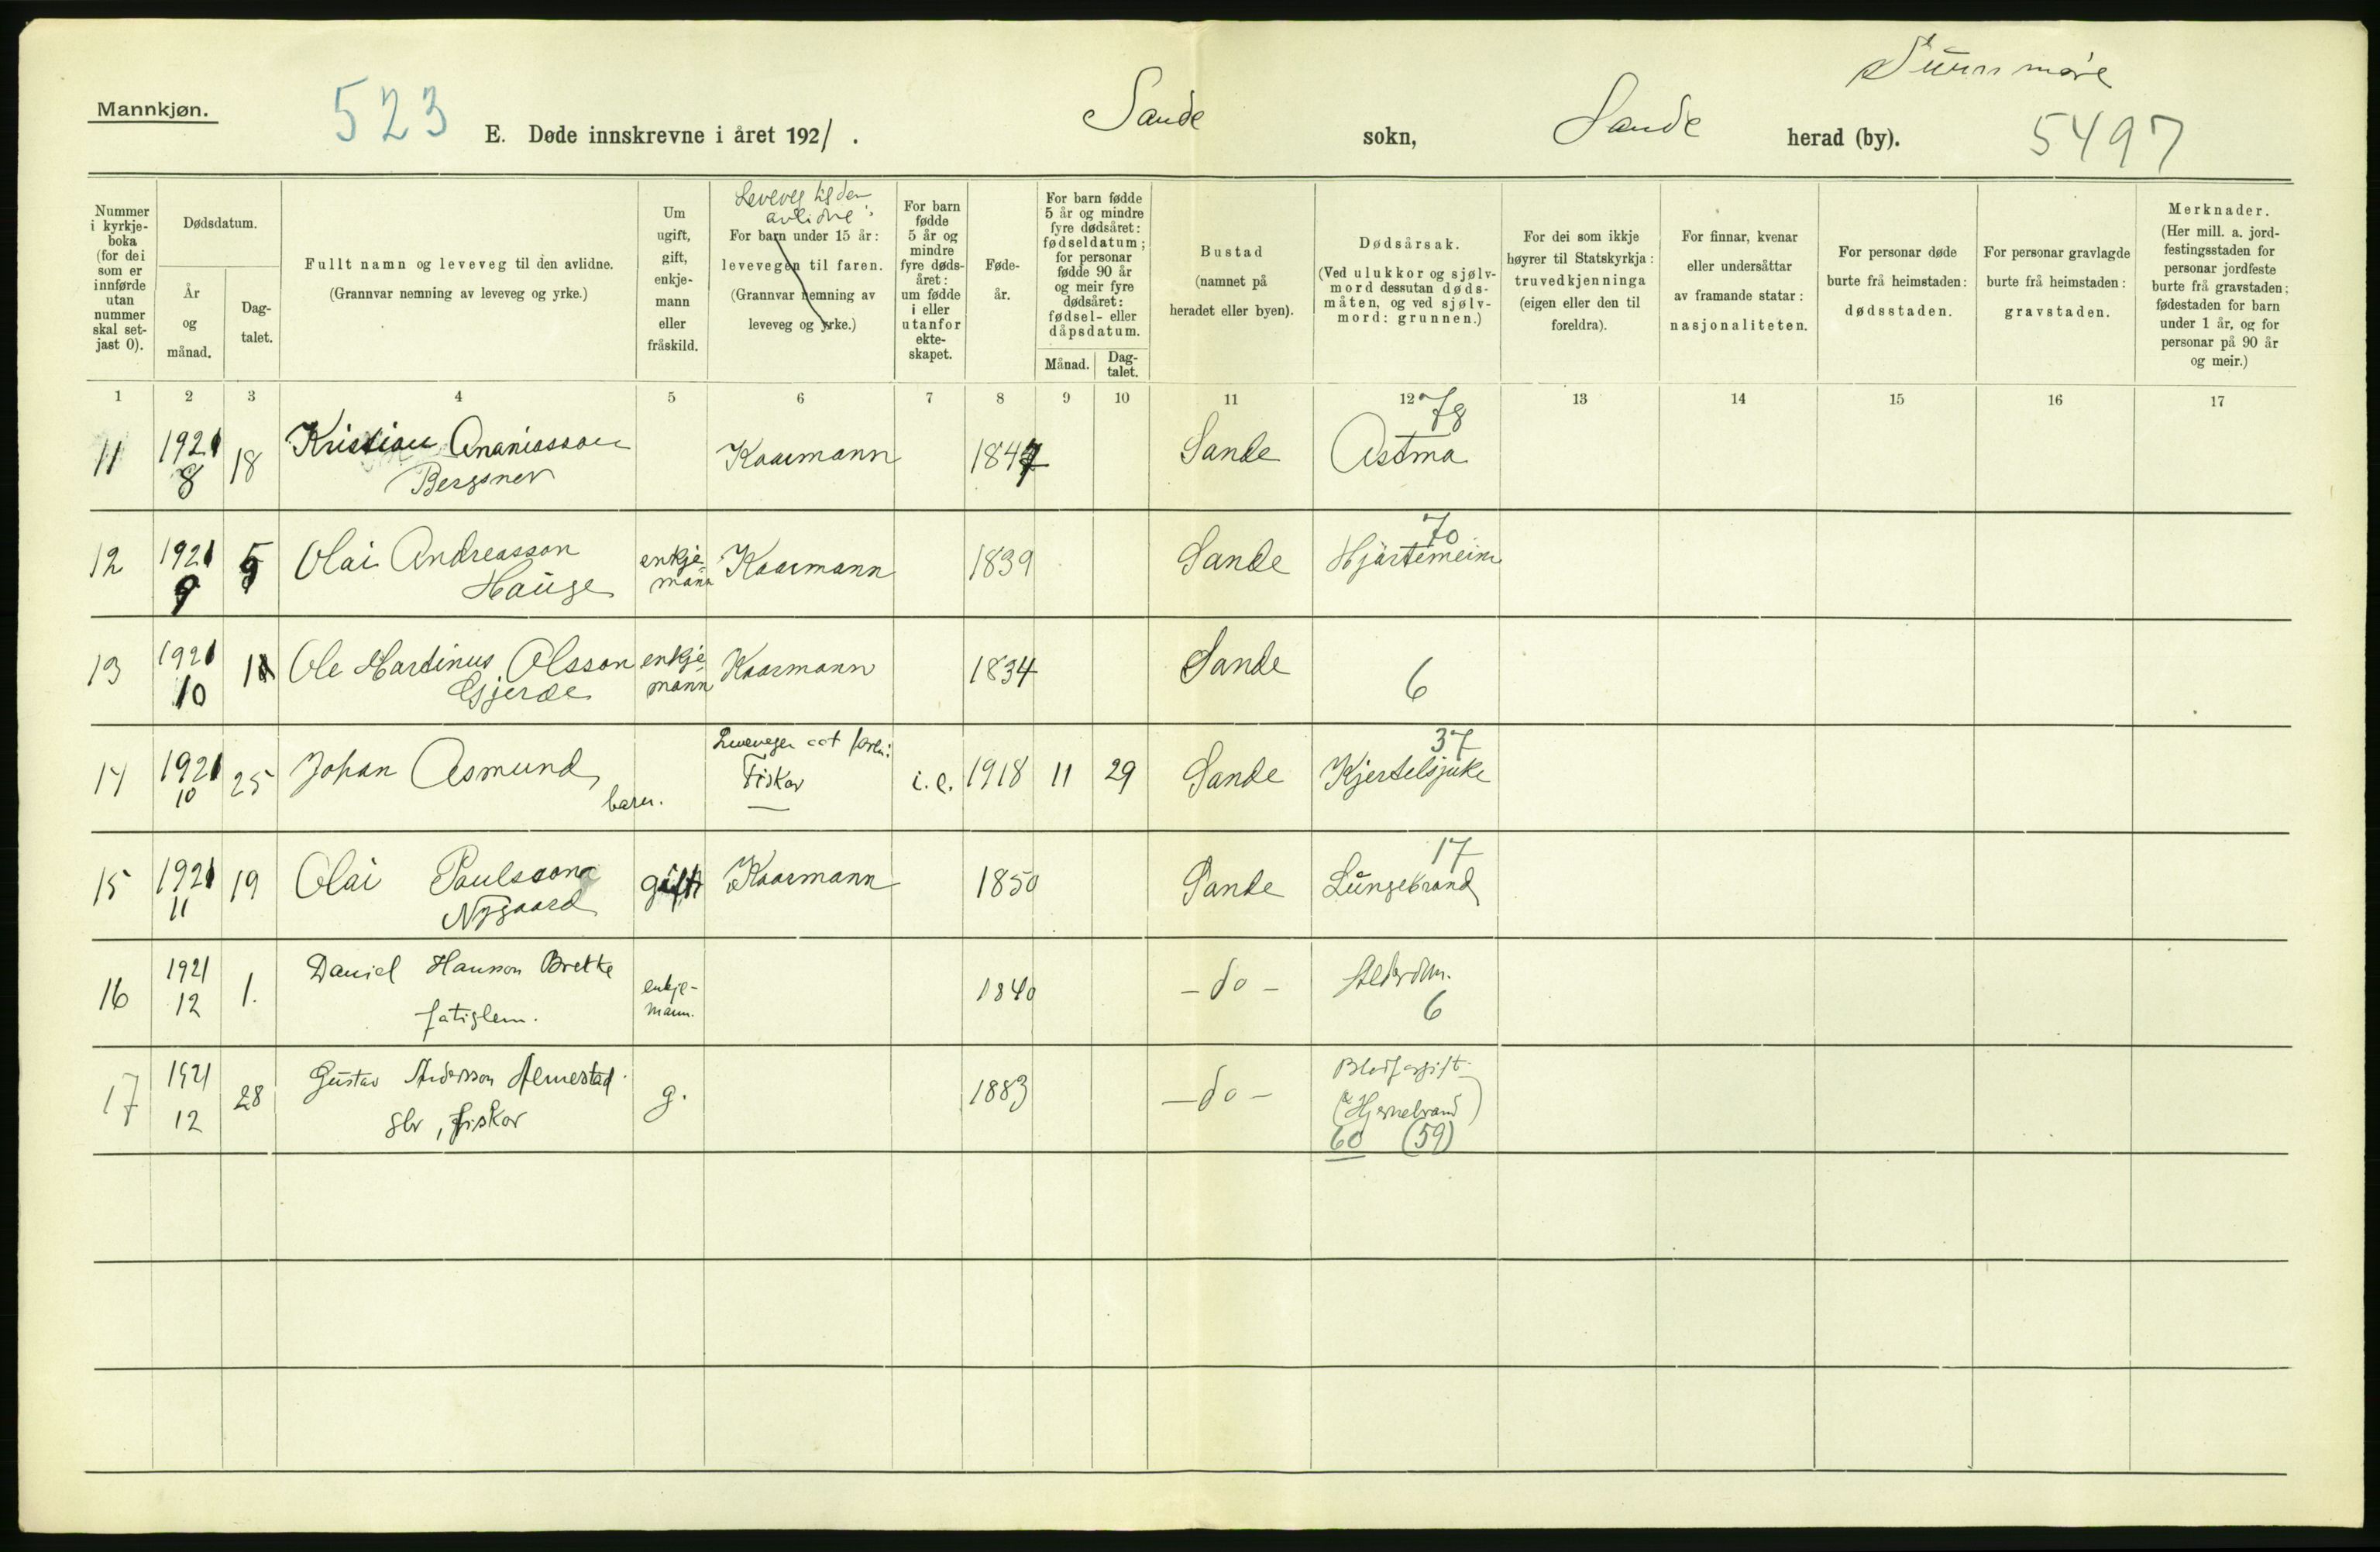 Mannkjøn.
523
E. Døde innskrevne i året 1921.
Sande sokn,
Sande herad (by).
Sunnmøre
5497
Nummer i kyrkje-boka (for dei som er innførde utan nummer skal set-jast 0).
Dødsdatum.
År og månad.
Dag-talet.
Fullt namn og leveveg til den avlidne.
(Grannvar nemning av leveveg og yrke.)
Um ugift, gift, enkje-mann eller fråskild.
Leveveg til den avlidne:
For barn under 15 år:
levevegen til faren.
(Grannvar nemning av
leveveg og yrke.)
For barn fødde 5 år og mindre fyre døds-året: um fødde i eller utanfor ekte-skapet.
Føde-år.
For barn fødde 5 år og mindre fyre dødsåret: fødseldatum; for personar fødde 90 år og meir fyre dødsåret: fødsel- eller dåpsdatum.
Månad.
Dag-talet.
Bustad
(namnet på
heradet eller byen).
Dødsårsak.
(Ved ulukkor og sjølv-
mord dessutan døds-
måten, og ved sjølv-
mord: grunnen.)
For dei som ikkje
høyrer til Statskyrkja:
truvedkjenninga
(eigen eller den til
foreldra).
For finnar, kvenar
eller undersåttar
av framande statar:
nasjonaliteten.
For personar døde
burte frå heimstaden:
dødsstaden.
For personar gravlagde
burte frå heimstaden:
gravstaden.
Merknader.
(Her mill. a. jord-
festingsstaden for
personar jordfeste
burte frå gravstaden;
fødestaden for barn
under 1 år, og for
personar på 90 år
og meir.)
1 2 3 4 5 6 7 8 9 10 11 12 13 14 15 16 17
11 1921 8 18 Kristian Ananiasson Bergsnev Kaarmann 1847 Sande 78 Astma
12 1921 9 5 Olai Andreasson Hauge enkje mann Kaarmann 1839 Sande 70 Hjartemein
13 1921 10 Ole Martinus Olsson Gjerde enkje mann Kaarmann 1834 Sande 6
14 1921 10 25 Johan Asmund, barn. Levevegen Fiskar i.e. 1918 11 29 Sande 37 Kjertelsjuke
15 1921 11 19 Olai Paulsson Nygaard gift Kaarmann 1850 Sande 17 Lungebrand
16 1921 12 1. Daniel Hansson Brekke fatiglem. enkje-mann. 1840 – do – Alderdom. 6
17 1921 12 28 Gustav Andersson Almestad gbr, fiskar g. 1883 – do – Blodforgift (Hjernebrand) 60 (59)